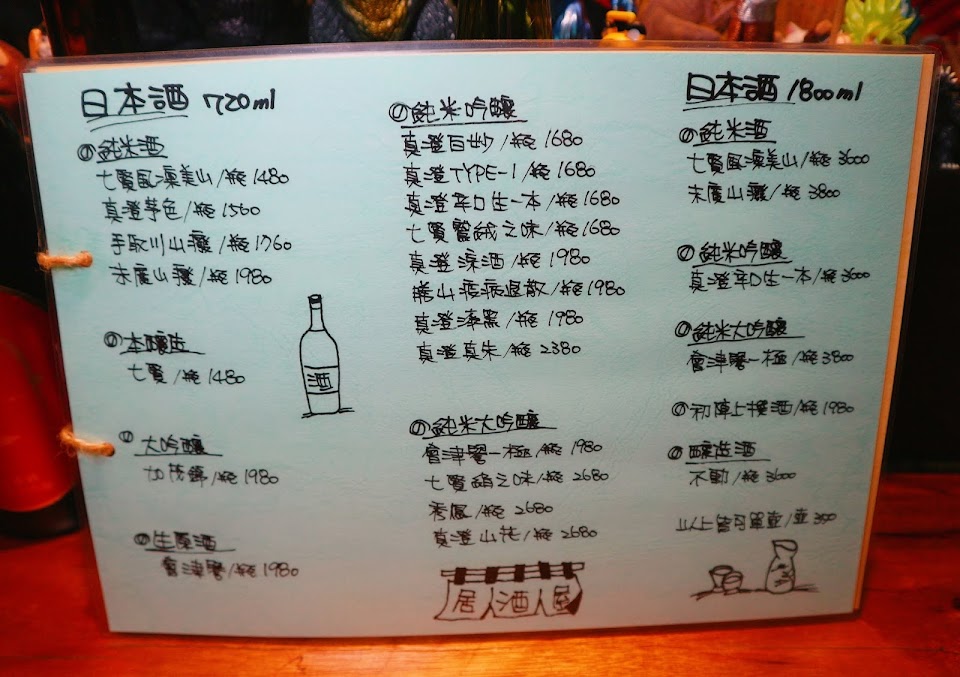 日本酒 720ml
純米酒
七賢風凜美山/瓶 1480
真澄茅色/瓶 1560
手取川山廢/瓶 1760
末廣山廢/瓶 1980
本釀造
七賢/瓶 1480
大吟釀
加茂錦/瓶 1980
生原酒
會津譽/瓶 1980
酒
純米吟釀
真澄白妙/瓶 1680
真澄TYPE-1/瓶 1680
真澄辛口生一本/瓶 1680
七賢 之味/瓶 1680
真澄涼酒/瓶 1980
勝山疫病退散/瓶 1980
真澄漆黑/瓶 1980
真澄真朱/瓶 2380
純米大吟釀
會津譽一極/瓶 1980
七賢絹之味/瓶 2680
秀鳳/瓶 2680
真澄山花/瓶 2680
居人酒人屋
日本酒 1800ml
純米酒
七賢風凜美山/瓶 3600
末廣山廢/瓶 3800
純米吟釀
真澄辛口生一本/瓶 3600
純米大吟釀
會津譽一極/瓶 3800
初陣上撰酒/瓶 1980
釀造酒
不動/瓶 3600
以上皆可單壺/壺 350